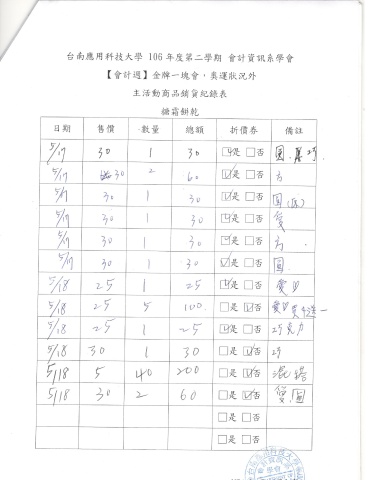 台南應用科技大學 106 年度第二學期 會計資訊系學會
【會計週】金牌一塊會，奧運狀況外
主活動商品銷貨紀錄表
糖霜餅乾
日期 售價 數量 總額 折價券 備註
5/17 30 1 30 ☑是 □否 圓.
5/17 30 2 60 ☑是 □否 方
5/17 30 1 30 ☑是 □否 圓
5/17 30 1 30 ☑是 □否 愛
5/17 30 1 30 ☑是 □否 方
5/17 30 1 30 ☑是 □否 圓.
5/18 25 1 25 ☑是 □否 愛
5/18 25 5 100 □是 ☑否 愛 買 送一
5/18 25 1 25 ☑是 □否 巧克力
5/18 30 1 30 □是 ☑否 巧
5/18 5 40 200 □是 ☑否 混搭
5/18 30 2 60 □是 ☑否 愛.圓
□是 □否
□是 □否